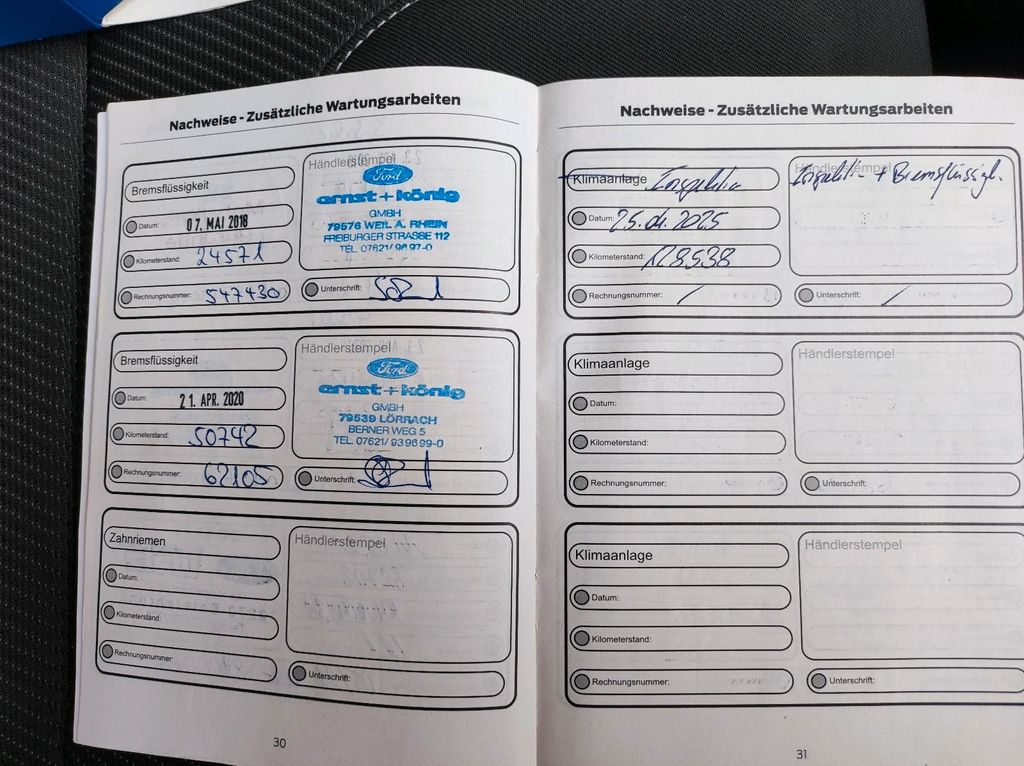 Nachweise - Zusätzliche Wartungsarbeiten
Bremsflüssigkeit
Datum: 07. MAI 2018
Kilometerstand: 24571
Rechnungsnummer: 547430
Händlerstempel
Ford
ernst+könig
GMBH
79576 WEIL A. RHEIN
FREIBURGER STRASSE 112
TEL. 07621/9697-0
Unterschrift:
Bremsflüssigkeit
Datum: 21. APR. 2020
Kilometerstand: 50742
Rechnungsnummer: 62105
Händlerstempel
Ford
ernst+könig
GMBH
79539 LÖRRACH
BERNER WEG 5
TEL. 07621/939699-0
Unterschrift:
Zahnriemen
Datum:
Kilometerstand:
Rechnungsnummer:
Händlerstempel
Unterschrift:
30
Nachweise - Zusätzliche Wartungsarbeiten
Klimaanlage Inspektion
Datum: 25.04.2025
Kilometerstand: 128538
Rechnungsnummer: /
Händlerstempel
Inspektion + Bremsflüssigk.
Unterschrift: /
Klimaanlage
Datum:
Kilometerstand:
Rechnungsnummer:
Händlerstempel
Unterschrift:
Klimaanlage
Datum:
Kilometerstand:
Rechnungsnummer:
Händlerstempel
Unterschrift:
31